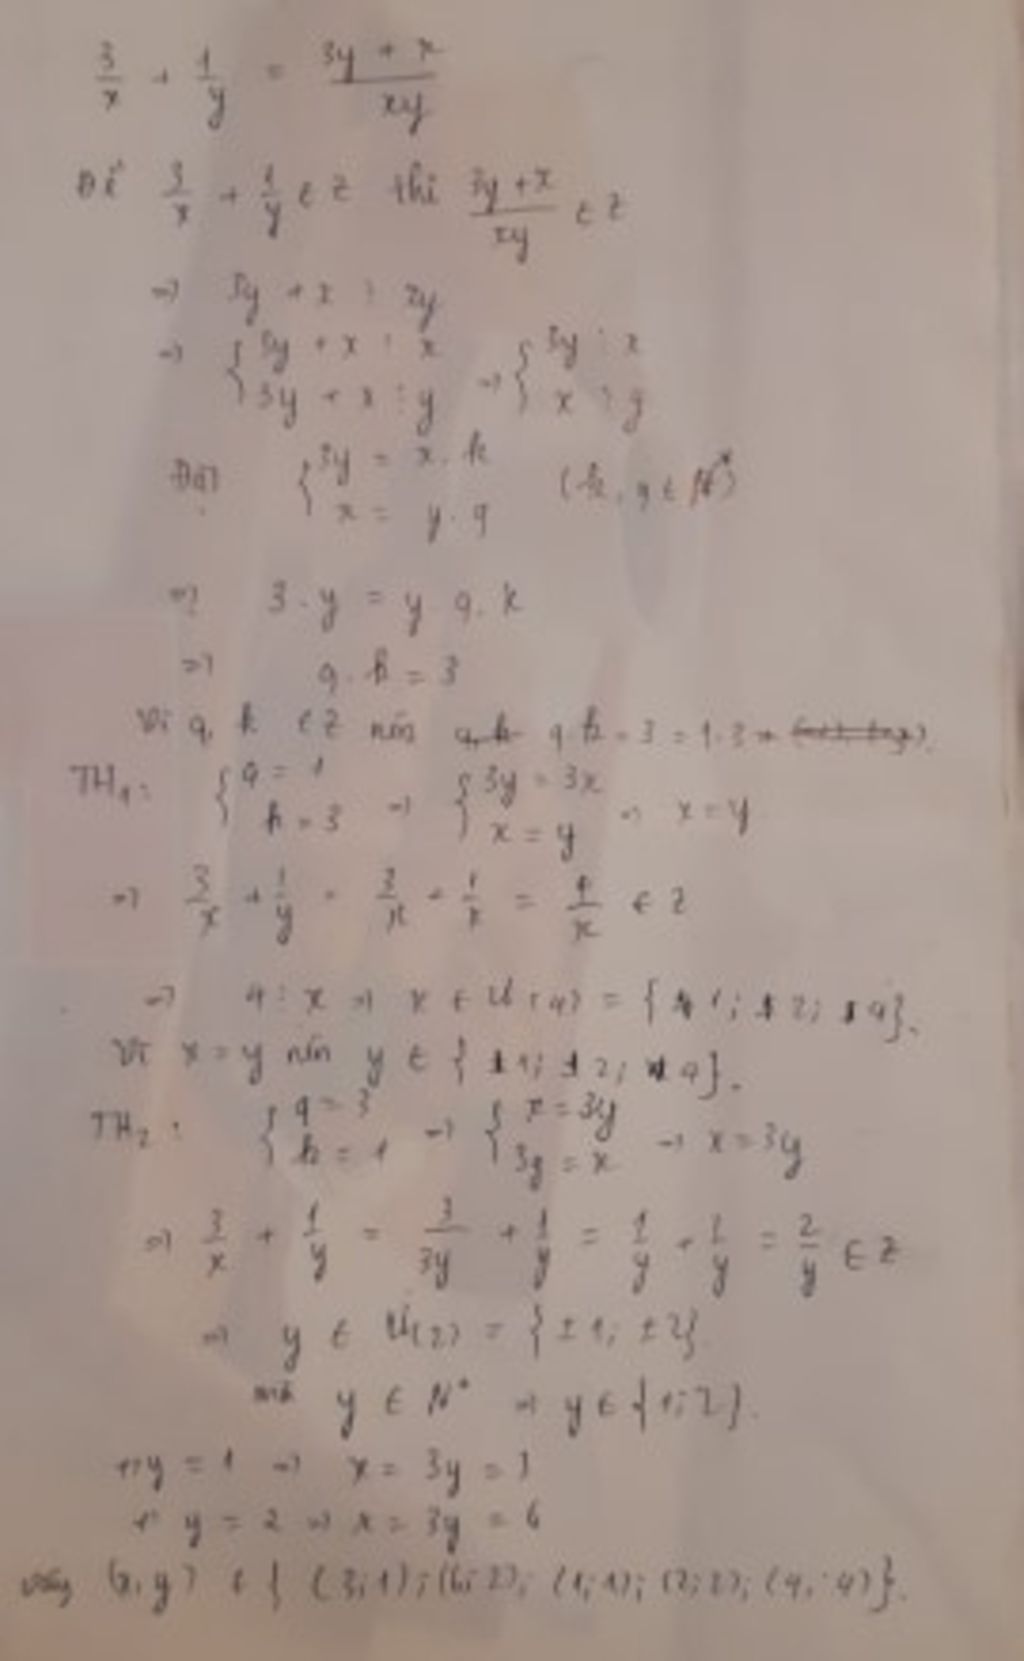 3/x + 1/y = (3y + x)/xy
Để 3/x + 1/y ∈ Z thì (3y + x)/xy ∈ Z
=> 3y + x ⋮ xy
=> { 3y + x ⋮ x ; 3y + x ⋮ y => { 3y ⋮ x ; x ⋮ y
Đặt { 3y = x . k ; x = y . q (k, q ∈ N*)
=> 3 . y = y . q . k
=> q . k = 3
Vì q, k ∈ Z nên q k = 3 = 1 . 3
TH1: { q = 1 ; k = 3 => { 3y = 3x ; x = y => x = y
=> 3/x + 1/y = 3/x + 1/x = 4/x ∈ Z
=> 4 ⋮ x => x ∈ Ư(4) = { 1; 2; 4}.
Vì x = y nên y ∈ { 1; 2; 4}.
TH2: { q = 3 ; k = 1 => { x = 3y ; 3y = x => x = 3y
=> 3/x + 1/y = 3/3y + 1/y = 1/y + 1/y = 2/y ∈ Z
=> y ∈ Ư(2) = {±1; ±2}
mà y ∈ N* => y ∈ {1; 2}.
+) y = 1 => x = 3y = 3
+) y = 2 => x = 3y = 6
Vậy (x, y) ∈ { (3; 1); (6; 2); (1; 1); (2; 2); (4; 4)}.